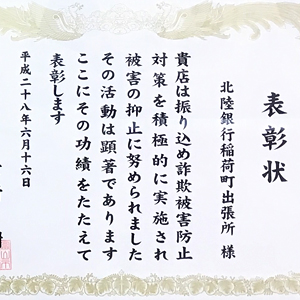 表彰状
北陸銀行稲荷町出張所 様
貴店は振り込め詐欺被害防止
対策を積極的に実施され
被害の抑止に努められました
その活動は顕著であります
ここにその功績をたたえて
表彰します
平成二十八年六月十六日